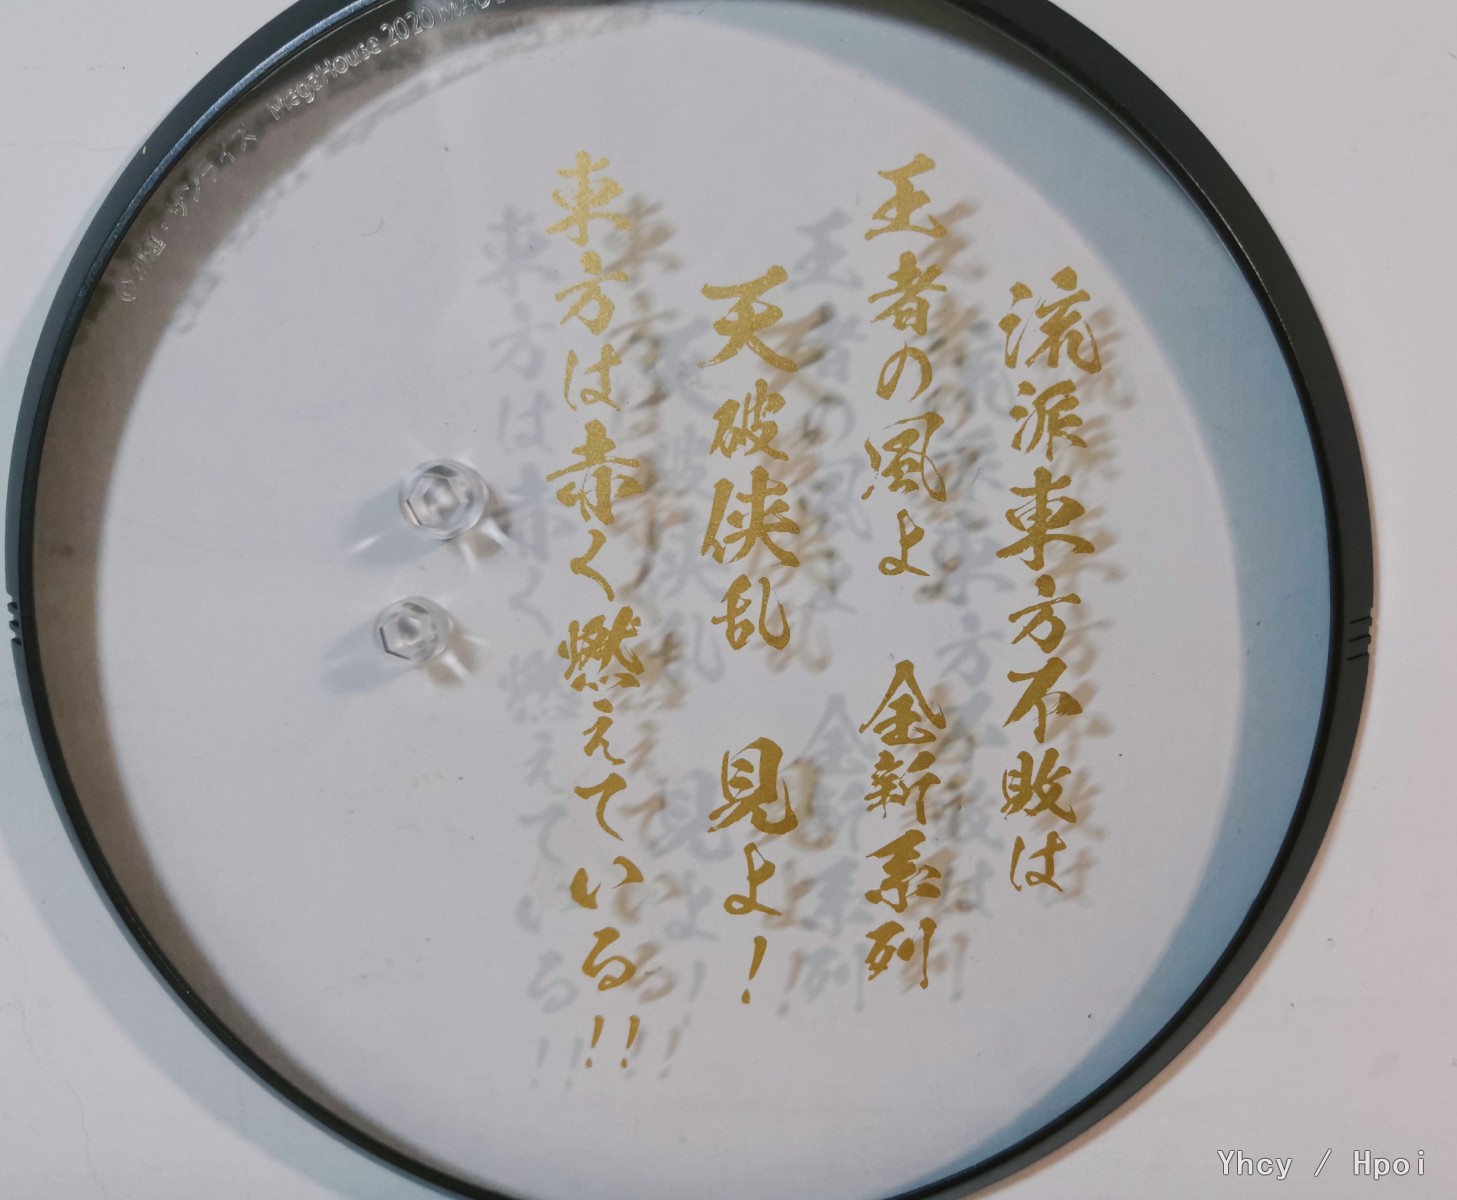 流派東方不敗は
王者の風よ 全新系列
天破侠乱 見よ!
東方は赤く燃えている!!
MegaHouse 2020
Yhcy / Hpoi